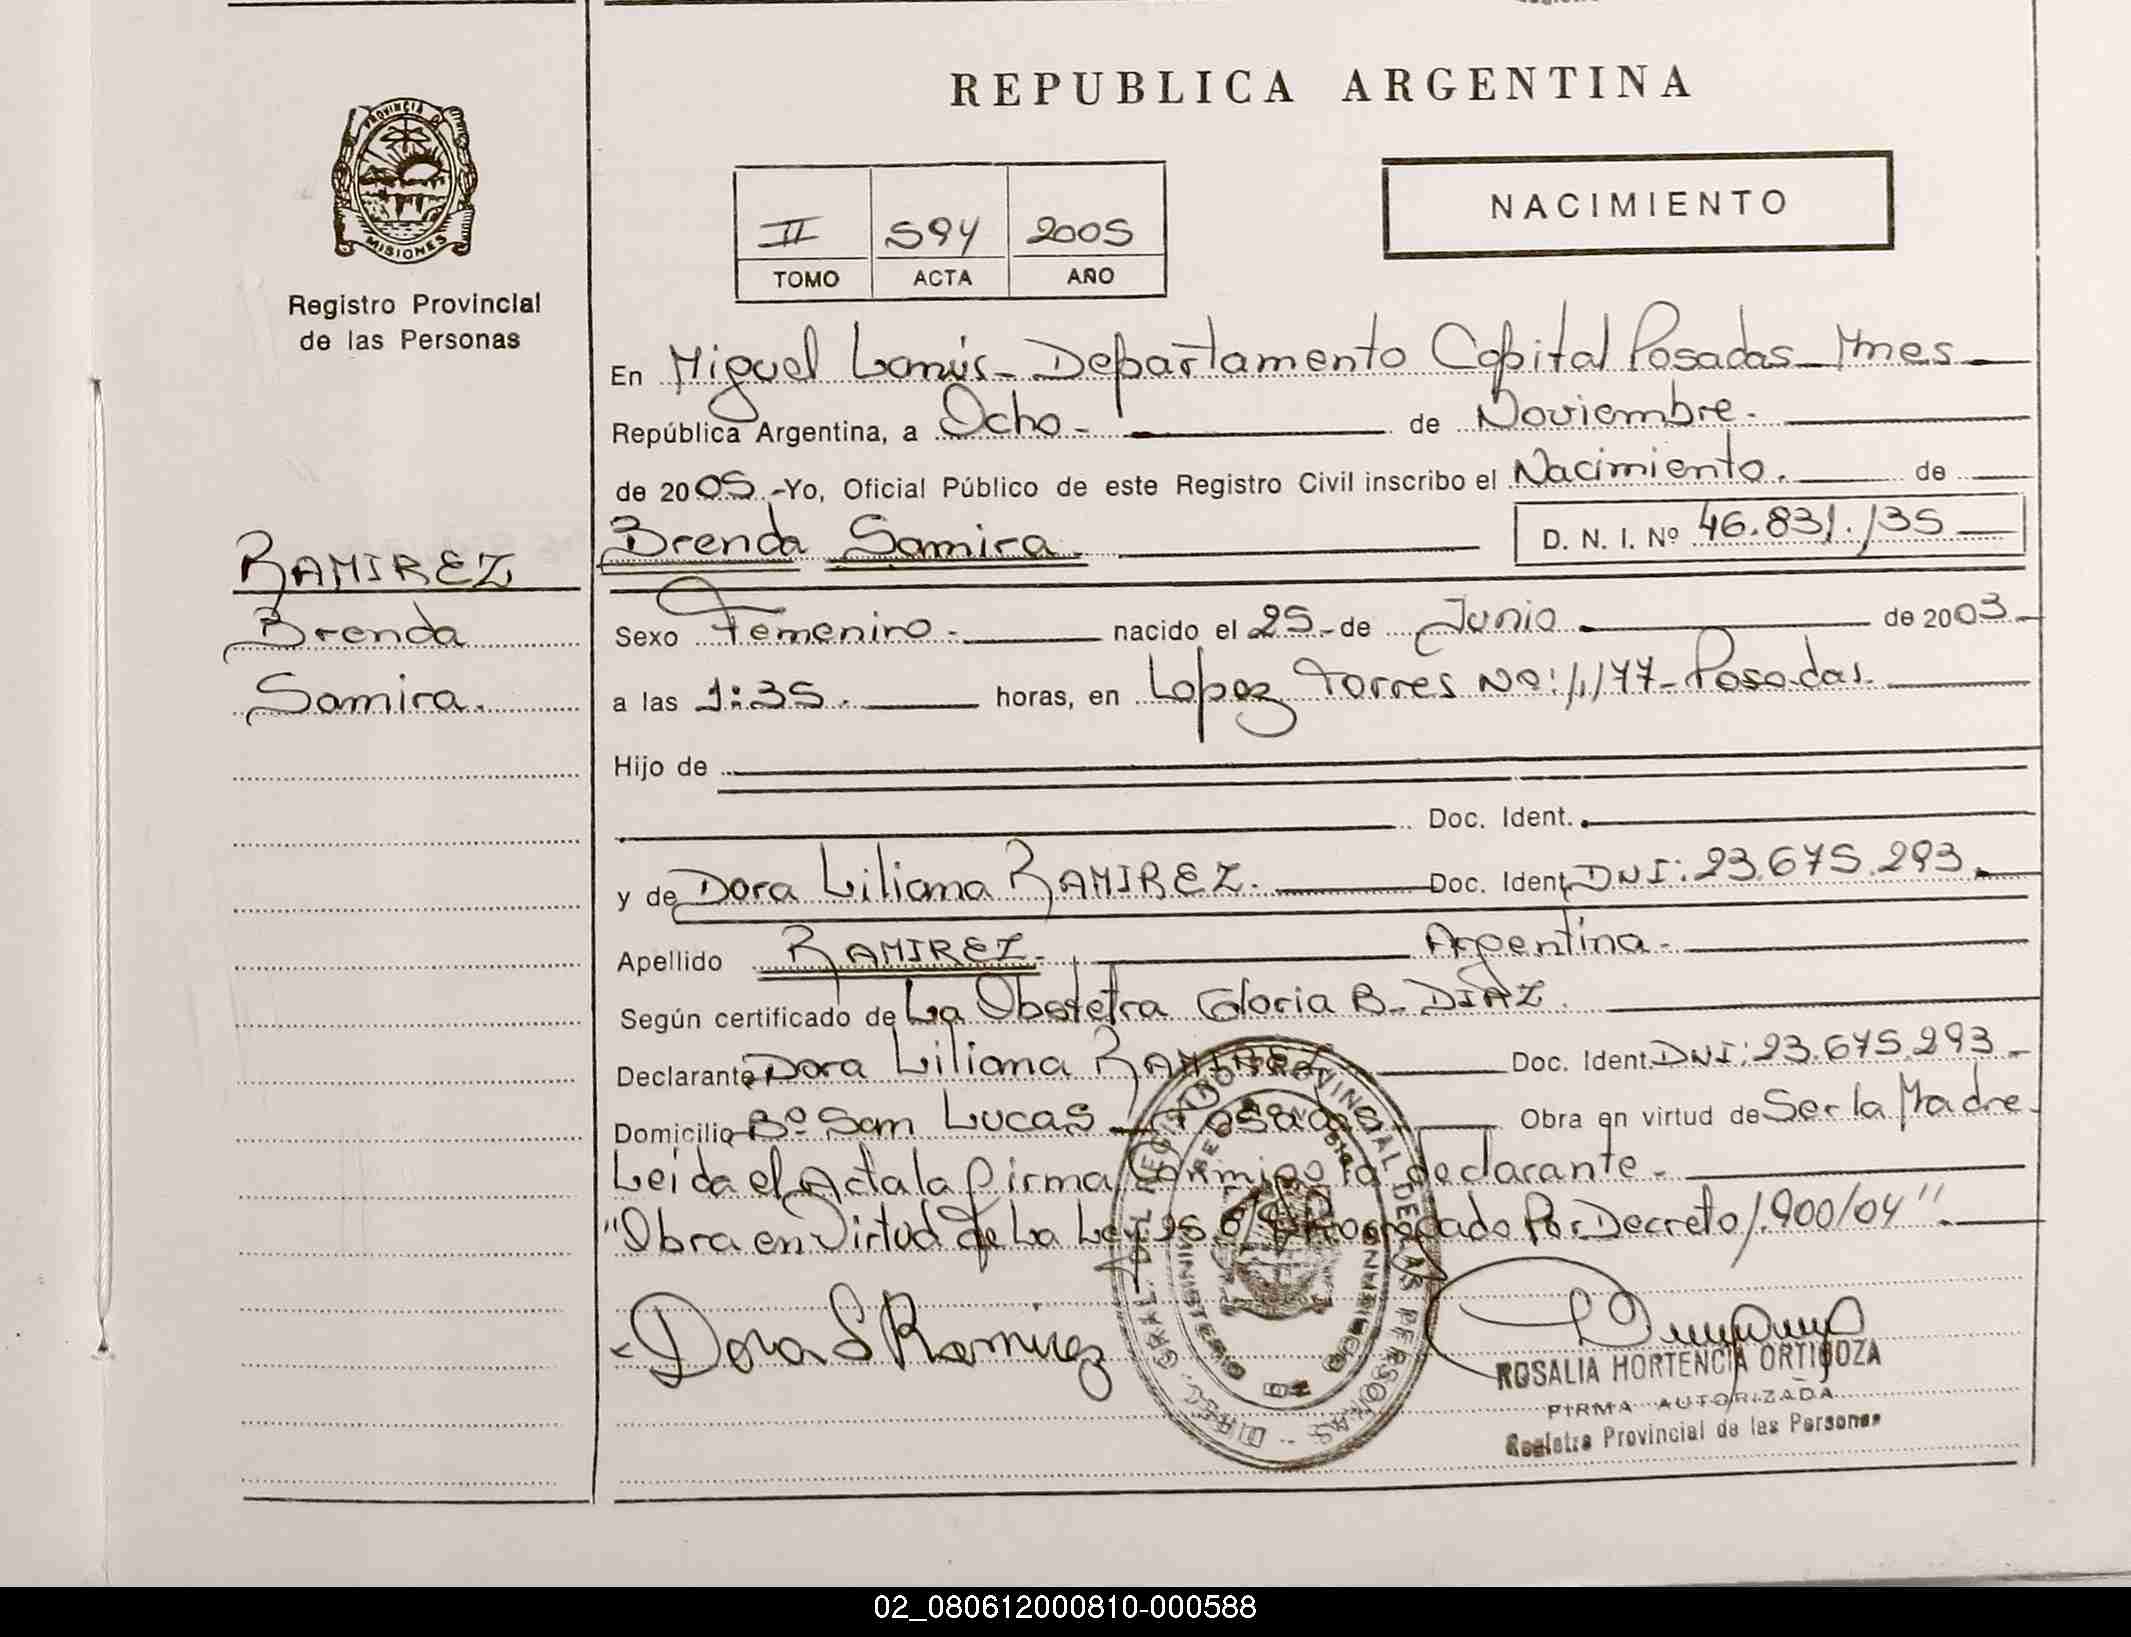 REPUBLICA ARGENTINA
PROVINCIA DE
MISIONES
Registro Provincial
de las Personas
NACIMIENTO
II 594 2005
TOMO ACTA AÑO
En Miguel Lanús - Departamento Capital Posadas - Mnes
República Argentina, a Ocho - de Noviembre.
de 2005.-Yo, Oficial Público de este Registro Civil inscribo el Nacimiento. de
RAMIREZ
Brenda
Samira.
Brenda Samira. D. N. I. Nº 46.831.135
Sexo Femenino. nacido el 25 - de Junio de 2003.
a las 1:35. horas, en Lopez Torres No: 1,177 - Posadas.
Hijo de
Doc. Ident.
y de Dora Liliana RAMIREZ. Doc. Ident. DNI: 23.675.293.
Apellido RAMIREZ. Argentina.
Según certificado de La Obstetra Gloria B. DIAZ.
Declarante Dora Liliana RAMIREZ Doc. Ident. DNI: 23.675.293.
Domicilio Bº San Lucas - Posadas Obra en virtud de Ser la Madre.
Leida el Acta la firma Conmigo la declarante.
"Obra en Virtud de La Ley 25.819 Prorrogado Por Decreto 1.900/04".
Dora L Ramirez
DIREC. GRAL. DEL REGISTRO PROVINCIAL DE LAS PERSONAS
MINISTERIO DE GOBIERNO
ROSALIA HORTENCIA ORTIGOZA
FIRMA AUTORIZADA
Registro Provincial de las Personas
02_080612000810-000588